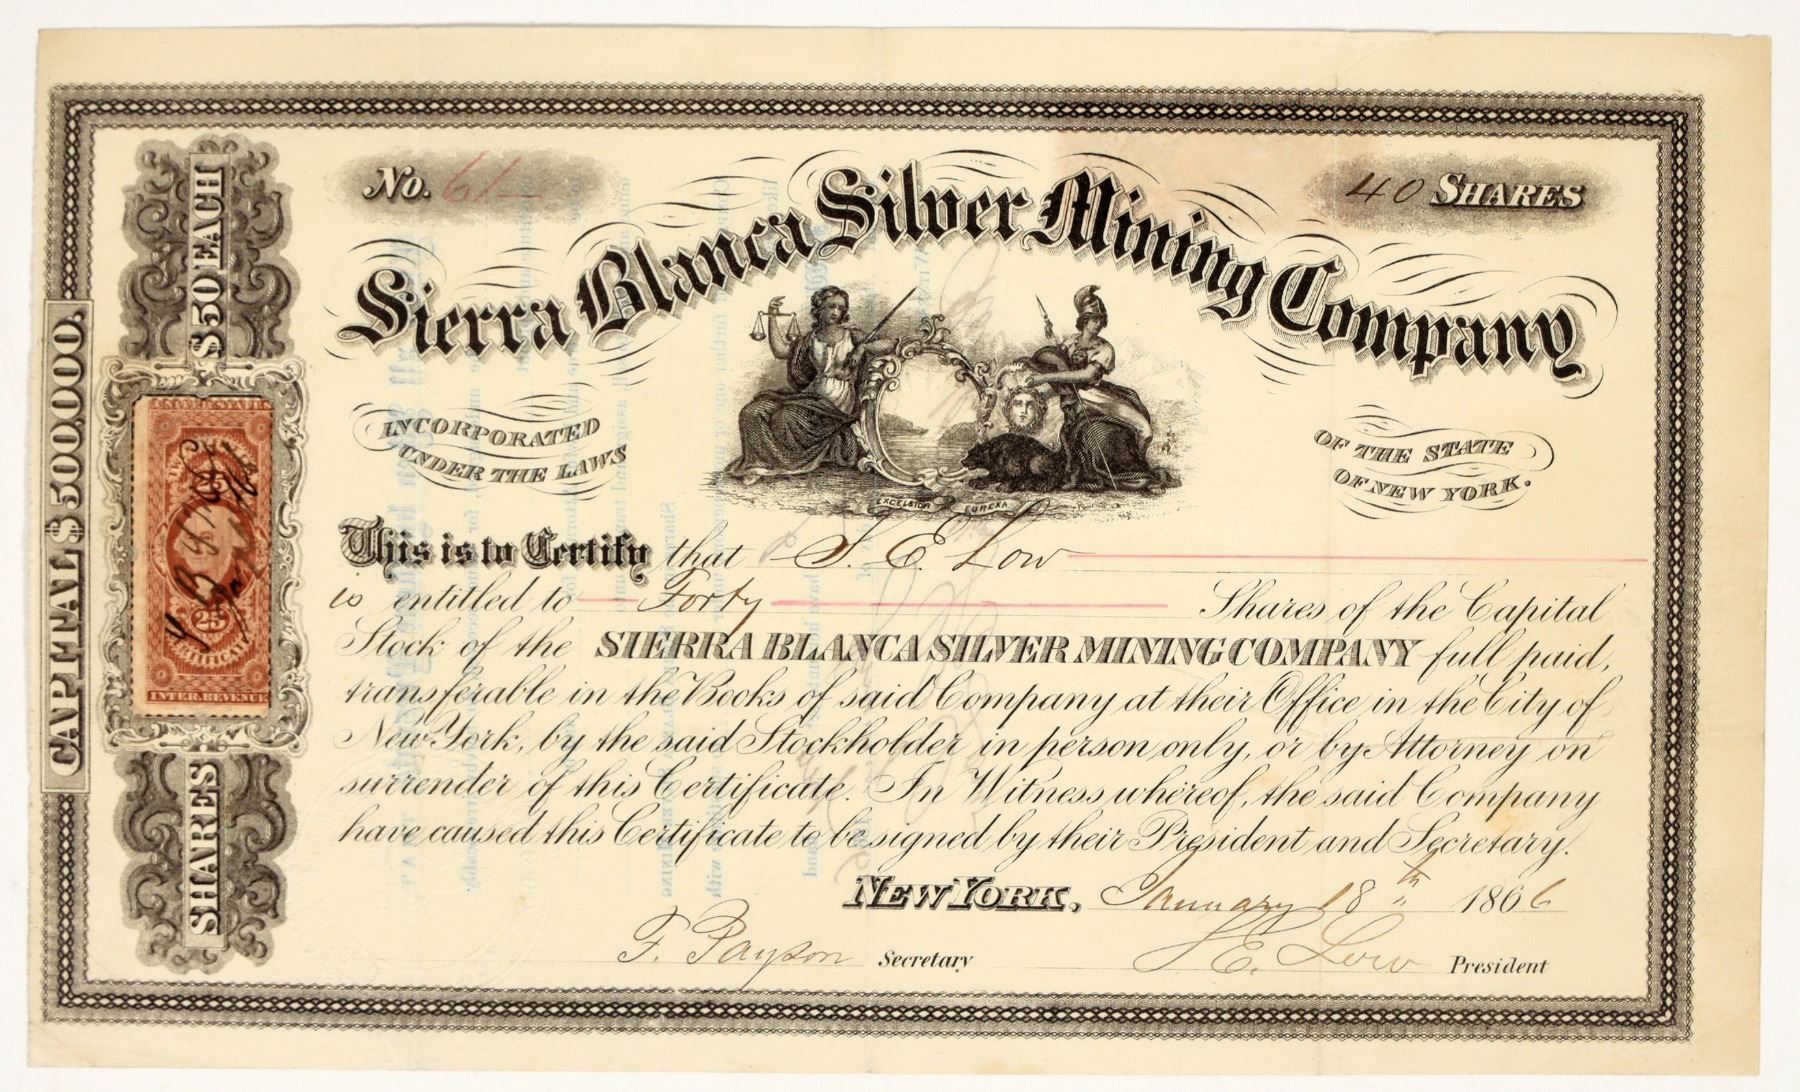 No. 61
40 SHARES
Sierra Blanca Silver Mining Company
INCORPORATED
UNDER THE LAWS
OF THE STATE
OF NEW YORK.
EXCELSIOR EUREKA
This is to Certify that S. E. Low
is entitled to Forty Shares of the Capital
Stock of the SIERRA BLANCA SILVER MINING COMPANY full paid,
transferable in the Books of said Company at their Office in the City of
New York, by the said Stockholder in person only, or by Attorney on
surrender of this Certificate. In Witness whereof, the said Company
have caused this Certificate to be signed by their President and Secretary.
NEW YORK, January 18th 1866
F. Payson Secretary
S E. Low President
CAPITAL $500,000.
SHARES
$50 EACH
UNITED STATES
25
CERTIFICATE
INTER. REVENUE